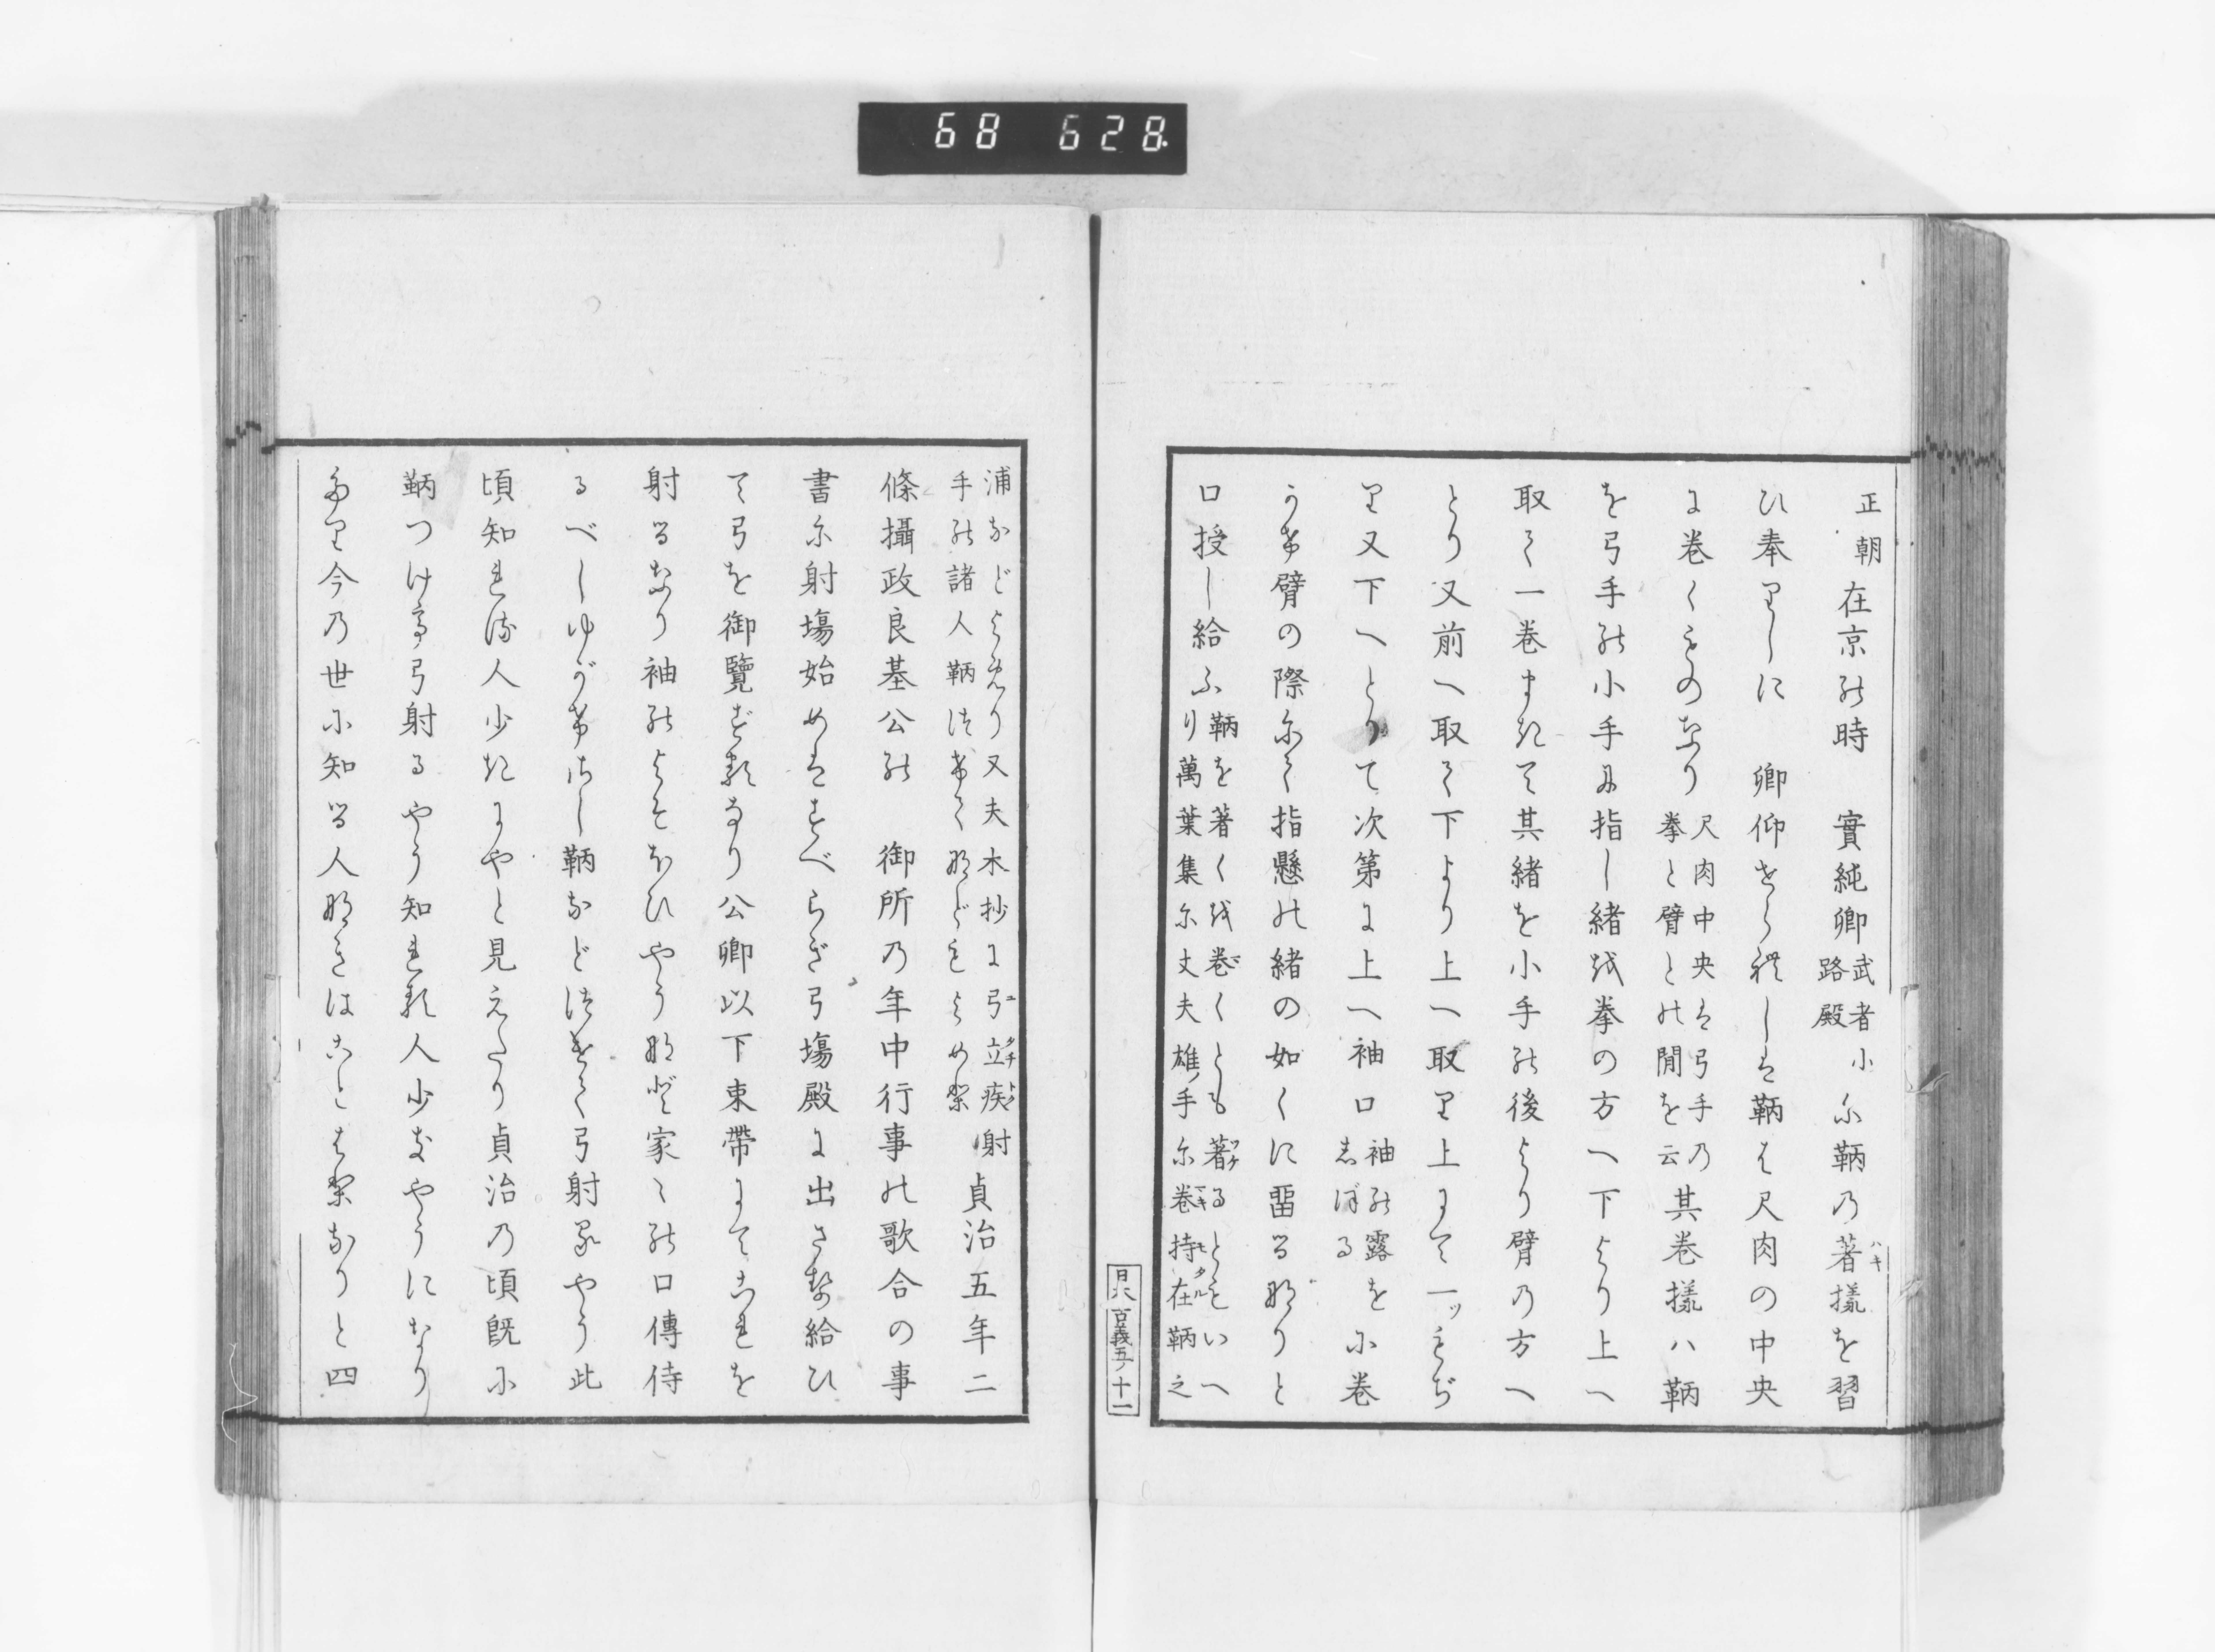 68 628
正朝在京の時 實純卿武者小路殿に鞆乃著樣を習
ハキ
ひ奉りしに 卿仰せられしは鞆は尺肉の中央
に巻くものなり尺肉中央は弓手乃拳と臂との間を云其巻樣ハ鞆
を弓手の小手に指し緒を拳の方へ下より上へ
取て一巻まきて其緒を小手の後より臂乃方へ
とり又前へ取て下より上へ取り上にて一ッもぢ
り又下へとりて次第に上へ袖口袖の露をしぼるに巻
うけ臂の際にて指懸の緒の如くに畱るなりと
口授し給ふ鞆を著くを巻くとも著るともいへり萬葉集尓丈夫雄手尓巻持在鞆之
月次 古義五ノ十一
浦などよめり又夫木抄に弓立疾手の諸人鞆つけてなどもよめる射貞治五年二
條攝政良基公の 御所乃年中行事の歌合の事
書に射塲始めはすべらぎ弓塲殿に出させ給ひ
て弓を御覽ずるなり公卿以下束帶にてこれを
射るなり袖のよそほひやうなど家〻の口傳侍
るべしゆがけさし鞆などつけて弓射るやう此
頃知れる人少きにやと見えたり貞治乃頃既に
鞆つけて弓射るやう知れる人少きやうになり
たり今乃世に知る人なきはことはりなりと四